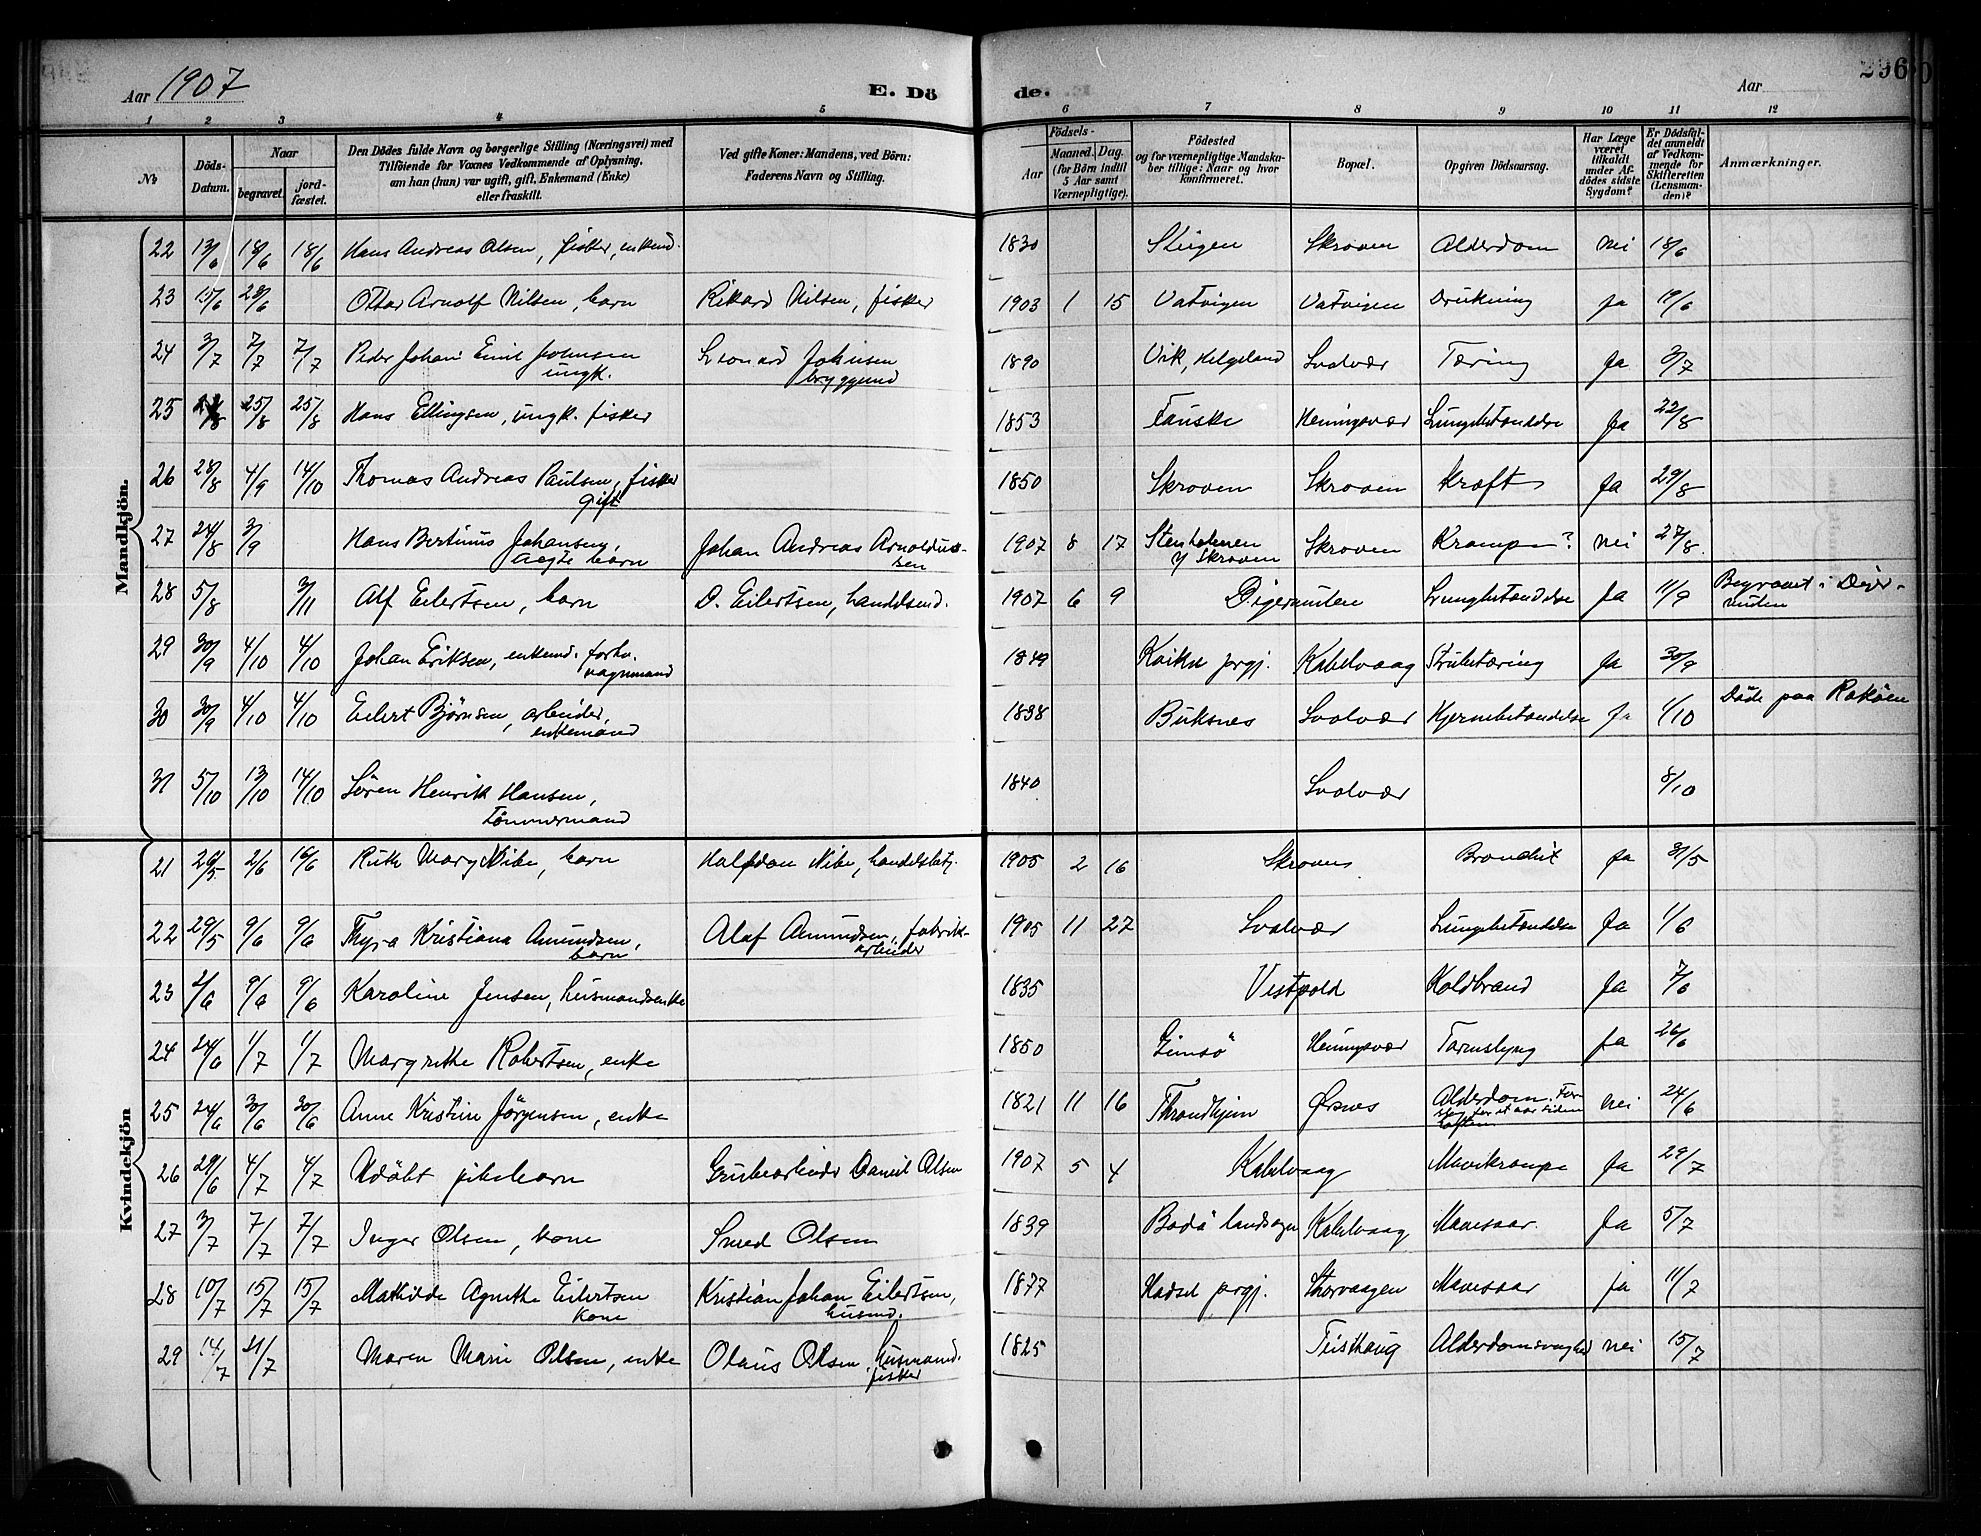 Aar 1907
E. Dö
de.
Aar
296
1 2 3 4 5 6 7 8 9 10 11 12
No
Döds-Datum.
Naar
begravet.
jord-fæstet.
Den Dödes fulde Navn og borgerlige Stilling (Næringsvei) med
Tilföiende for Voxnes Vedkommende af Oplysning,
om han (hun) var ugift, gift, Enkemand (Enke)
eller fraskilt.
Ved gifte Koner: Mandens, ved Börn:
Faderens Navn og Stilling.
Födsels-
Aar
Maaned. Dag.
(for Börn indtil
5 Aar samt
Værnepligtige).
Födested
og for værnepligtige Mandska-
ber tillige: Naar og hvor
konfirmeret.
Bopæl.
Opgiven Dödsaarsag.
Har Læge
været
tilkaldt
under Af-
dödes sidste
Sygdom?
Er Dödsfal-
det anmeldt
af Vedkom-
mende for
Skifteretten
(Lensman-
den)?
Anmærkninger.
Mandkjön.
22 13/6 18/6 18/6 Hans Andreas Olsen, fisker, enkemd. 1830 Steigen Skroven Alderdom nei 18/6
23 15/6 23/6 Ottar Arnolf Nilsen, barn Rikard Nilsen, fisker 1903 1 15 Vatvigen Vatvigen Drukning ja 19/6
24 3/7 7/7 7/7 Peder Johan Emil Johnsen ungk. Leonard Johnsen bryggemd 1890 Vik, Helgeland Svolvær Tæring Ja 3/7
25 25/8 25/8 Hans Ellingsen, ungk. fisker 1853 Fauske Henningsvær Lungebetændelse Ja 22/8
26 28/8 4/9 14/10 Thomas Andreas Paulsen, fisker gift 1850 Skroven Skroven Kræft Ja 29/8
27 24/8 3/9 Hans Bertinus Johansen, ægte barn Johan Andreas Arnoldus-sen 1907 8 17 Stenholmen v/ Skroven Skroven Krampe? nei 27/8
28 5/8 3/11 Alf Eilertsen, barn D. Eilertsen, handelsmd. 1907 6 9 Digermulen Lungebetændelse Ja 11/9 Begravet i Diger-mulen
29 30/9 4/10 4/10 Johan Eriksen, enkemd. forhv. vognmand 1849 Kabelvaag Strubetæring Ja 30/9
30 30/9 4/10 4/10 Eilert Bjørnsen, arbeider, enkemand Buksnes Svolvær Hjernebetændelse Ja 1/10 Døde paa
31 5/10 13/10 14/10 Søren Henrik Hansen, tømmermand 1840 Svolvær 8/10
Kvindekjön
21 2/6 16/6 Ruth Mary Nibe, barn Halfdan Nibe, handelsbetj. 1905 2 16 Skroven Bronchit Ja 31/5
22 29/5 9/6 9/6 Thyra Kristiana Amundsen, barn Olaf Amundsen, fabrik-arbeider 1905 11 27 Svolvær Lungebetændelse Ja 1/6
23 2/6 9/6 9/6 Karoline Jensen, husmandsenke 1835 Vestpold Koldbrand Ja 7/6
24 24/6 1/7 1/7 Margrethe Robertsen, enke 1850 Gimsø Henningsvær Tarmslyng Ja 26/6
25 24/6 30/6 30/6 Anne Kristine Jørgensen, enke 1821 11 16 Throndhjem Ørsnes Alderdom. nei 24/6
26 29/6 4/7 4/7 Udøbt pikebarn Grubearbeider Daniel Olsen 1907 5 4 Kabelvaag Mavekrampe Ja 29/7
27 3/7 7/7 7/7 Inger Olsen, kone Smed Olsen 1839 Bodø landsogn Kabelvaag Mavesaar. Ja 5/7
28 10/7 15/7 15/7 Mathilde Agnethe Eilertsen kone Kristian Johan Eilertsen, husmd. 1877 Hadsel prgj. Storvaagen Mavesaar ja 11/7
29 14/7 21/7 Maren Marie Olsen, enke Olaus Olsen, husmand. fisker 1825 Teisthaug Alderdomsvaghed nei 15/7